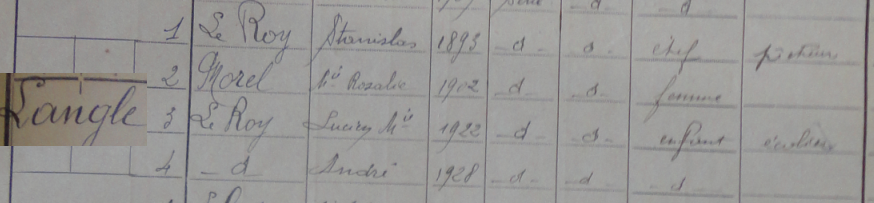 1 Le Roy Stanislas 1893 -d- d- chef pêcheur
2 Morel Mie Rozalie 1902 -d- -d- femme
Langle
3 Le Roy Lucien Mie 1922 -d- d- enfant
4 -d André 1928 -d- -d- -d-